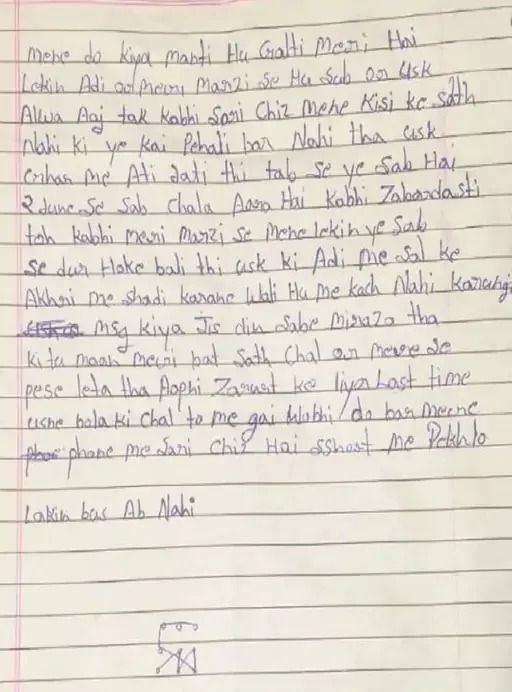 mene do kiya manti Hu Galti Meri Hai
Lekin Adi or meri Marzi se Hu Sab or Usk
Alwa Aaj tak kabhi Sari Chiz Mene Kisi ke sath
Nahi ki ye koi Pehali bar Nahi tha usk
Ghar me Ati Jati thi tab se ye Sab Hai
2 June Se Sab Chala Aara Hai kabhi Zabardasti
toh kabhi meri Marzi se Mene lekin ye Sab
se dur Hoke bali thi usk ki Adi me sal ke
Akhri me shadi karane Wali Hu me kach Nahi Karungi
msg kiya Jis din Sabe
ki tu maan meri bat Sath Chal or mere se
pese leta tha Apphi Zarurt ke liye Last time
usne bola ki Chal to me gai Wobhi do bar meene
phone me Sari Chiz Hai sshost me Dekhlo
Lakin bas Ab Nahi